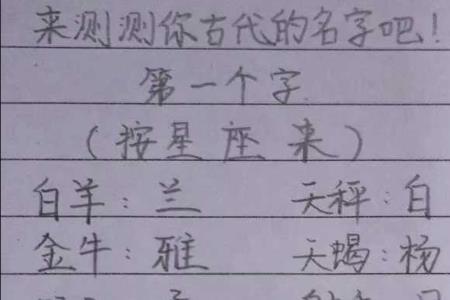 来测测你古代的名字吧！
第一个字
（按星座来）
白羊：兰 天秤：白
金牛：雅 天蝎：杨